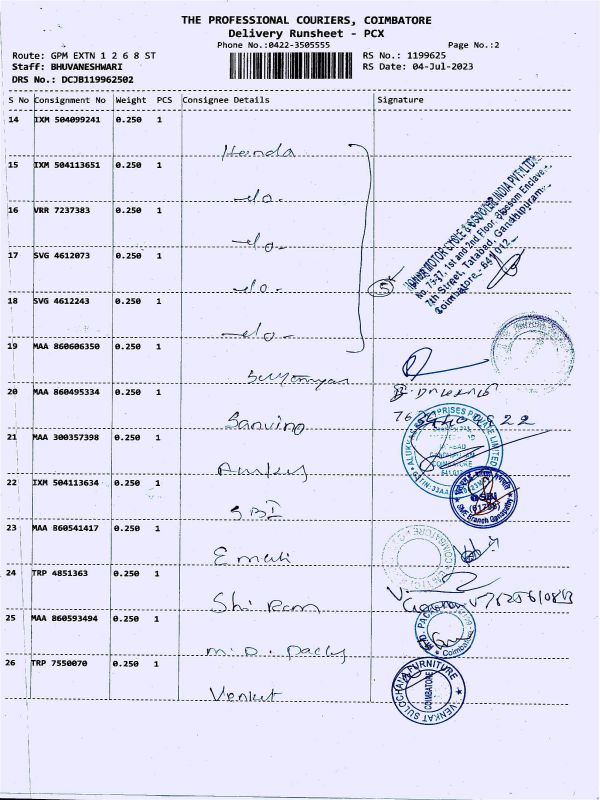 THE PROFESSIONAL COURIERS, COIMBATORE
Delivery Runsheet - PCX
Phone No.:0422-3505555 Page No.:2
Route: GPM EXTN 1 2 6 8 ST RS No.: 1199625
Staff: BHUVANESHWARI RS Date: 04-Jul-2023
DRS No.: DCJB119962502
S No Consignment No Weight PCS Consignee Details Signature
14 IXM 504099241 0.250 1
Honda
15 IXM 504113651 0.250 1
-do-
16 VRR 7237383 0.250 1
-do-
17 SVG 4612073 0.250 1
-do-
18 SVG 4612243 0.250 1
-do-
5
HONDA MOTOR CYCLE & SCOOTER INDIA PVT.LTD.
No. 75-77, 1st and 2nd Floor, Blossom Enclave,
7th Street, Tatabad, Gandhipuram,
Coimbatore - 641 012
19 MAA 860606350 0.250 1
20 MAA 860495334 0.250 1
21 MAA 300357398 0.250 1
22 IXM 504113634 0.250 1
SBI
SBI
SME Branch Ganapathy
23 MAA 860541417 0.250 1
Emali
24 TRP 4851363 0.250 1
Shri Ram
25 MAA 860593494 0.250 1
M. D. Packg
26 TRP 7550070 0.250 1
Venkat
VENKAT SULOCHANA FURNITURE
COIMBATORE